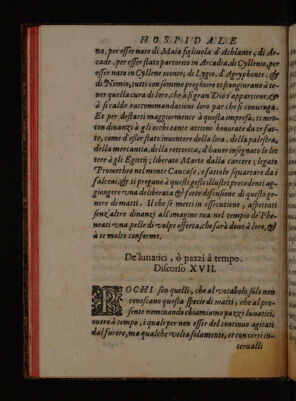 HOSPIDALE
na, per esser nato di Maia figliuola d'Athlante, di Ar-
cade, per esser stato partorito in Arcadia, di Cyllenio, per
esser nato in Cyllene monte; di Lygio, d'Agryphonte, &
di Nomio, tutti con somme preghiere ti scongiurano à te-
ner quella cura di loro, che à sì gran Dio s'appartiene, &
à sì calde raccommandationi loro par che si conuenga.
Et per destarti maggiormente à questa impresa, ti met-
ton dinanzi à gli occhi tante attioni honorate da te fat-
te, come d'esser stato inuentor della lira, della palestra,
della mercantia, della rettorica, d'hauer insegnato le let
tere à gli Egittij; liberato Marte dalla carcere; legato
Prometheo nel monte Caucaso, e fattolo squartare da i
falconi, & ti pregano à questi gesti illustri precedenti ag-
giongere vna deliberata & forte difensione di questo ge-
nere di matti. Il che se metti in essecutione, aspettati
senz'altro dinanzi all'imagine tua nel tempio de' Phe-
neati vna pelle di volpe offerta, che sarà dono à loro, &
à te molto conforme.
De' lunatici, ò pazzi à tempo.
Discorso XVII.
POCHI son quelli, che al vocabolo solo non
conoscano questa specie di matti, che al pre-
sente nominando chiamiamo pazzi lunatici,
ouero à tempo, i quali per non esser del continuo agitati
dal furore, ma qualche volta solamente, et con certi in-
terualli